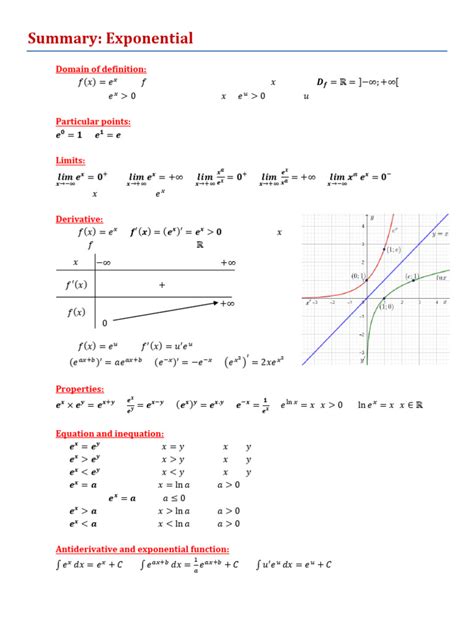 Summary: Exponential
Domain of definition:
f(x) = eˣ f x D_f = ℝ = ]−∞; +∞[
eˣ > 0 x eᵘ > 0 u
Particular points:
e⁰ = 1 e¹ = e
Limits:
lim_{x→−∞} eˣ = 0⁺ lim_{x→+∞} eˣ = +∞ lim_{x→+∞} xᵃ/eˣ = 0⁺ lim_{x→+∞} eˣ/xᵃ = +∞ lim_{x→−∞} xᵃ eˣ = 0⁻
x eˣ
Derivative:
f(x) = eˣ f′(x) = (eˣ)′ = eˣ > 0 x
f ℝ
x −∞ +∞
f′(x) +
f(x) 0 +∞
y
4
eˣ
y = x
3
(1; e)
2
(0; 1)
1
(e; 1)
ln x
(1; 0)
x
-3 -2 -1 1 2 3 4
-1
-2
-3
f(x) = eᵘ f′(x) = u′eᵘ
(eᵃˣ⁺ᵇ)′ = aeᵃˣ⁺ᵇ (e⁻ˣ)′ = −e⁻ˣ (e^{x²})′ = 2xe^{x²}
Properties:
eˣ × eʸ = eˣ⁺ʸ eˣ/eʸ = eˣ⁻ʸ (eˣ)ʸ = e^{x.y} e⁻ˣ = 1/eˣ e^{ln x} = x x > 0 ln eˣ = x x ∈ ℝ
Equation and inequation:
eˣ = eʸ x = y x y
eˣ > eʸ x > y x y
eˣ < eʸ x < y x y
eˣ = a x = ln a a > 0
eˣ = a a ≤ 0
eˣ > a x > ln a a > 0
eˣ < a x < ln a a > 0
Antiderivative and exponential function:
∫ eˣ dx = eˣ + C ∫ eᵃˣ⁺ᵇ dx = 1/a eᵃˣ⁺ᵇ + C ∫ u′eᵘ dx = eᵘ + C